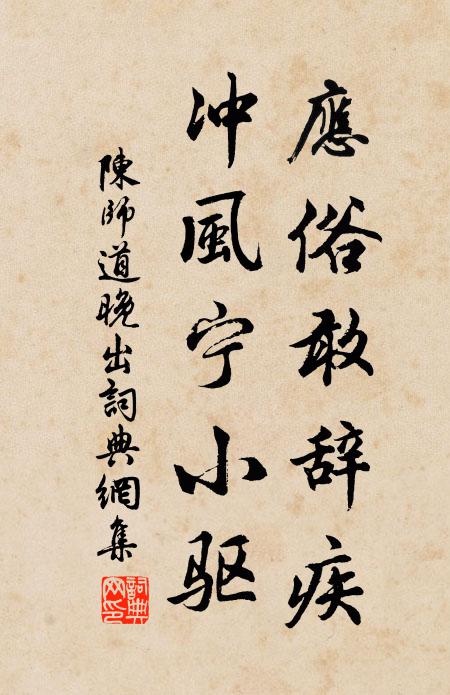 應俗敢辞疾
冲風宁小驱
陳師道晚出詞典網集
詞典網印